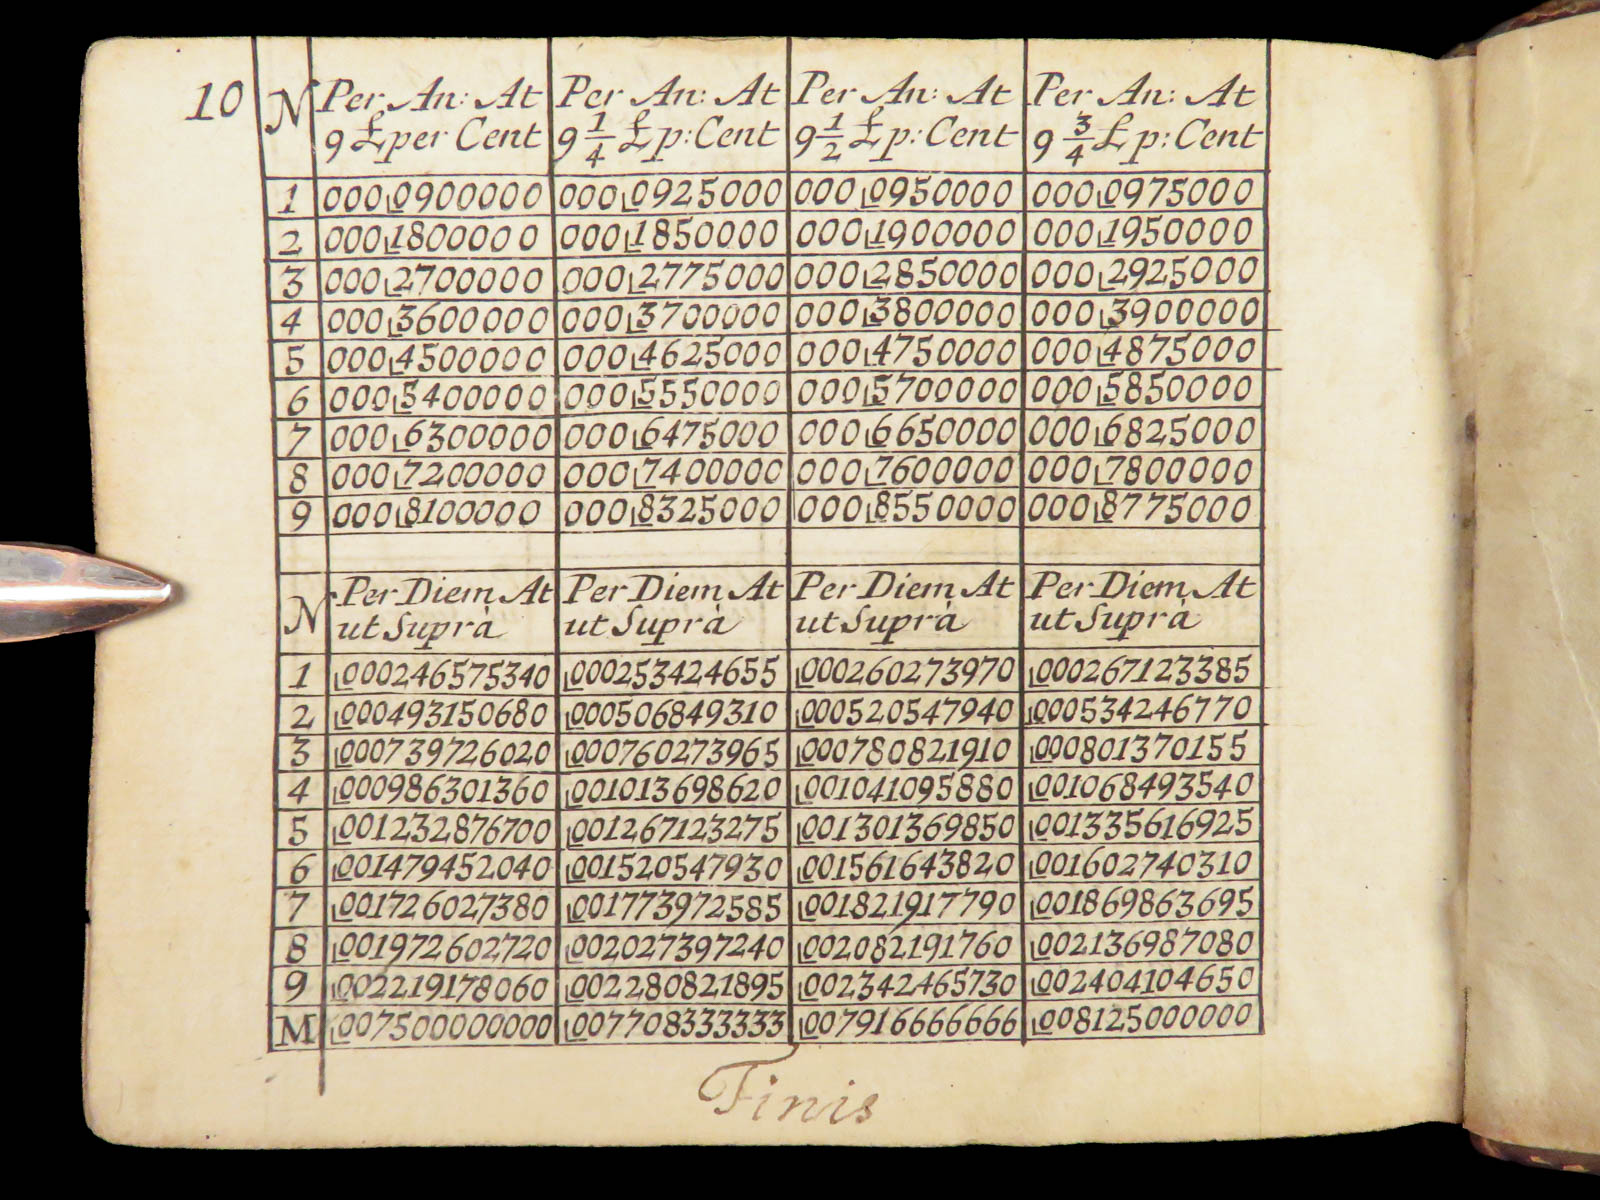 10
N Per An: At Per An: At Per An: At Per An: At
9 £ per Cent 9 1/4 £ p: Cent 9 1/2 £ p: Cent 9 3/4 £ p: Cent
1 000⌊0900000 000⌊0925000 000⌊0950000 000⌊0975000
2 000⌊1800000 000⌊1850000 000⌊1900000 000⌊1950000
3 000⌊2700000 000⌊2775000 000⌊2850000 000⌊2925000
4 000⌊3600000 000⌊3700000 000⌊3800000 000⌊3900000
5 000⌊4500000 000⌊4625000 000⌊4750000 000⌊4875000
6 000⌊5400000 000⌊5550000 000⌊5700000 000⌊5850000
7 000⌊6300000 000⌊6475000 000⌊6650000 000⌊6825000
8 000⌊7200000 000⌊7400000 000⌊7600000 000⌊7800000
9 000⌊8100000 000⌊8325000 000⌊8550000 000⌊8775000
N Per Diem At Per Diem At Per Diem At Per Diem At
ut Suprà ut Suprà ut Suprà ut Suprà
1 ⌊000246575340 ⌊000253424655 ⌊000260273970 ⌊000267123385
2 ⌊000493150680 ⌊000506849310 ⌊000520547940 ⌊000534246770
3 ⌊000739726020 ⌊000760273965 ⌊000780821910 ⌊000801370155
4 ⌊000986301360 ⌊001013698620 ⌊001041095880 ⌊001068493540
5 ⌊001232876700 ⌊001267123275 ⌊001301369850 ⌊001335616925
6 ⌊001479452040 ⌊001520547930 ⌊001561643820 ⌊001602740310
7 ⌊001726027380 ⌊001773972585 ⌊001821917790 ⌊001869863695
8 ⌊001972602720 ⌊002027397240 ⌊002082191760 ⌊002136987080
9 ⌊002219178060 ⌊002280821895 ⌊002342465730 ⌊002404104650
M ⌊007500000000 ⌊007708333333 ⌊007916666666 ⌊008125000000
Finis